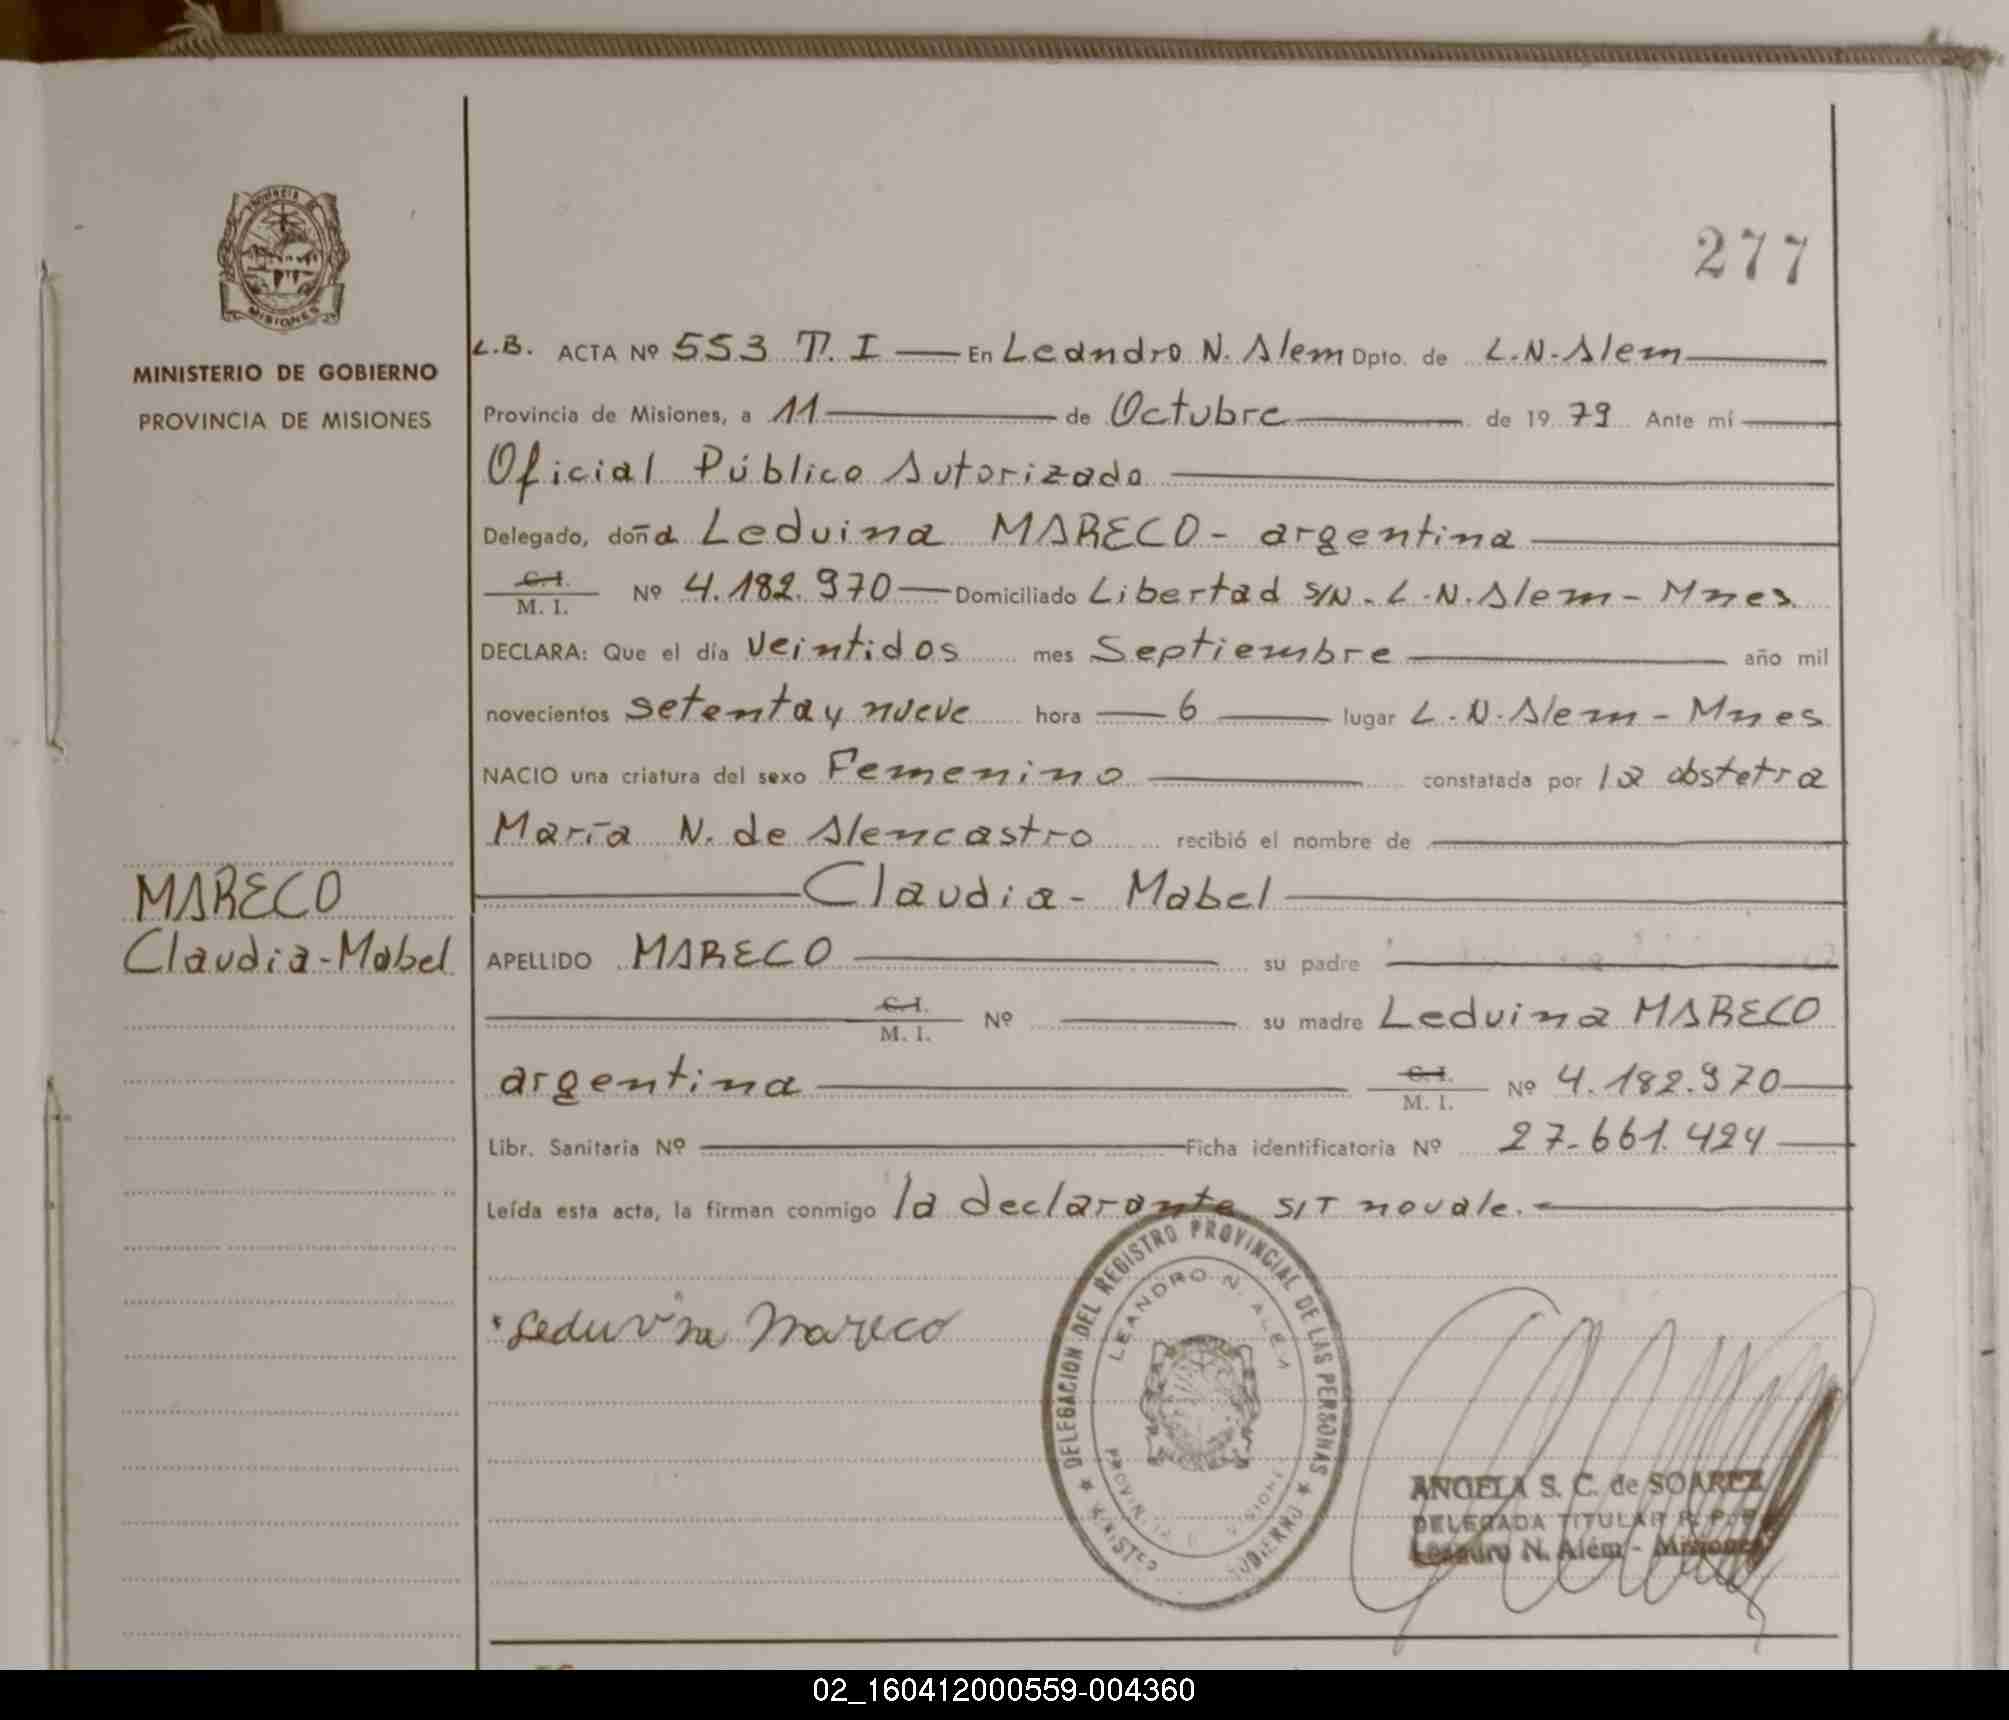 277
Provincia de
MISIONES
MINISTERIO DE GOBIERNO
PROVINCIA DE MISIONES
L.B. ACTA Nº 553 T. I En Leandro N. Alem Dpto. de L.N.Alem
Provincia de Misiones, a 11 de Octubre de 1979 Ante mí
Oficial Público Autorizado
Delegado, doña Leduina MARECO - argentina
C.I.
M. I. Nº 4.182.970 Domiciliado Libertad S/N. L.N.Alem - Mnes
DECLARA: Que el día veintidos mes Septiembre año mil
novecientos setenta y nueve hora 6 lugar L.N.Alem - Mnes
NACIO una criatura del sexo Femenino constatada por la obstetra
María N. de Alencastro recibió el nombre de
Claudia - Mabel
MARECO
Claudia-Mabel
APELLIDO MARECO su padre
C.I.
M. I. Nº su madre Leduina MARECO
argentina C.I.
M. I. Nº 4.182.970
Libr. Sanitaria Nº Ficha identificatoria Nº 27.661.424
Leída esta acta, la firman conmigo la declarante S/T no vale.
Leduvina Mareco
DELEGACION DEL REGISTRO PROVINCIAL DE LAS PERSONAS
LEANDRO N. ALEM
ANGELA S. C. de SOAREZ
DELEGADA TITULAR R. P. P.
Leandro N. Além - Misiones
02_160412000559-004360